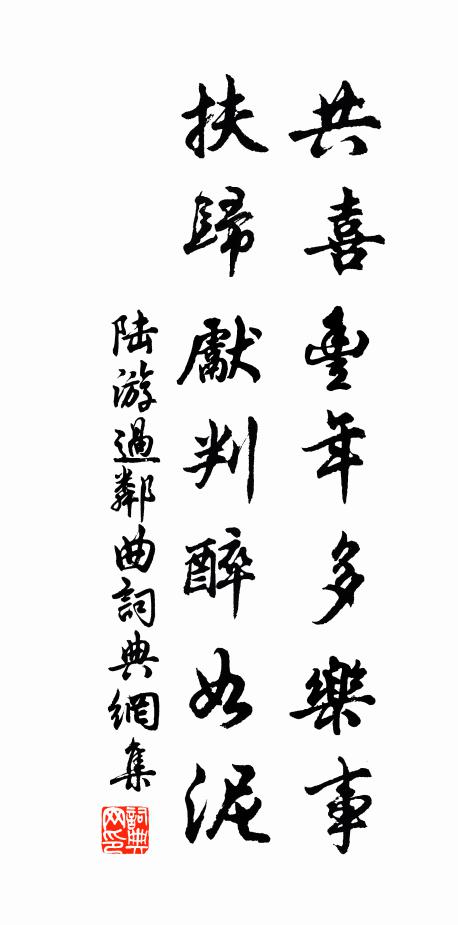 共喜豐年多樂事
扶歸獻判醉如泥
陸游過鄰曲詞典網集
詞典網印